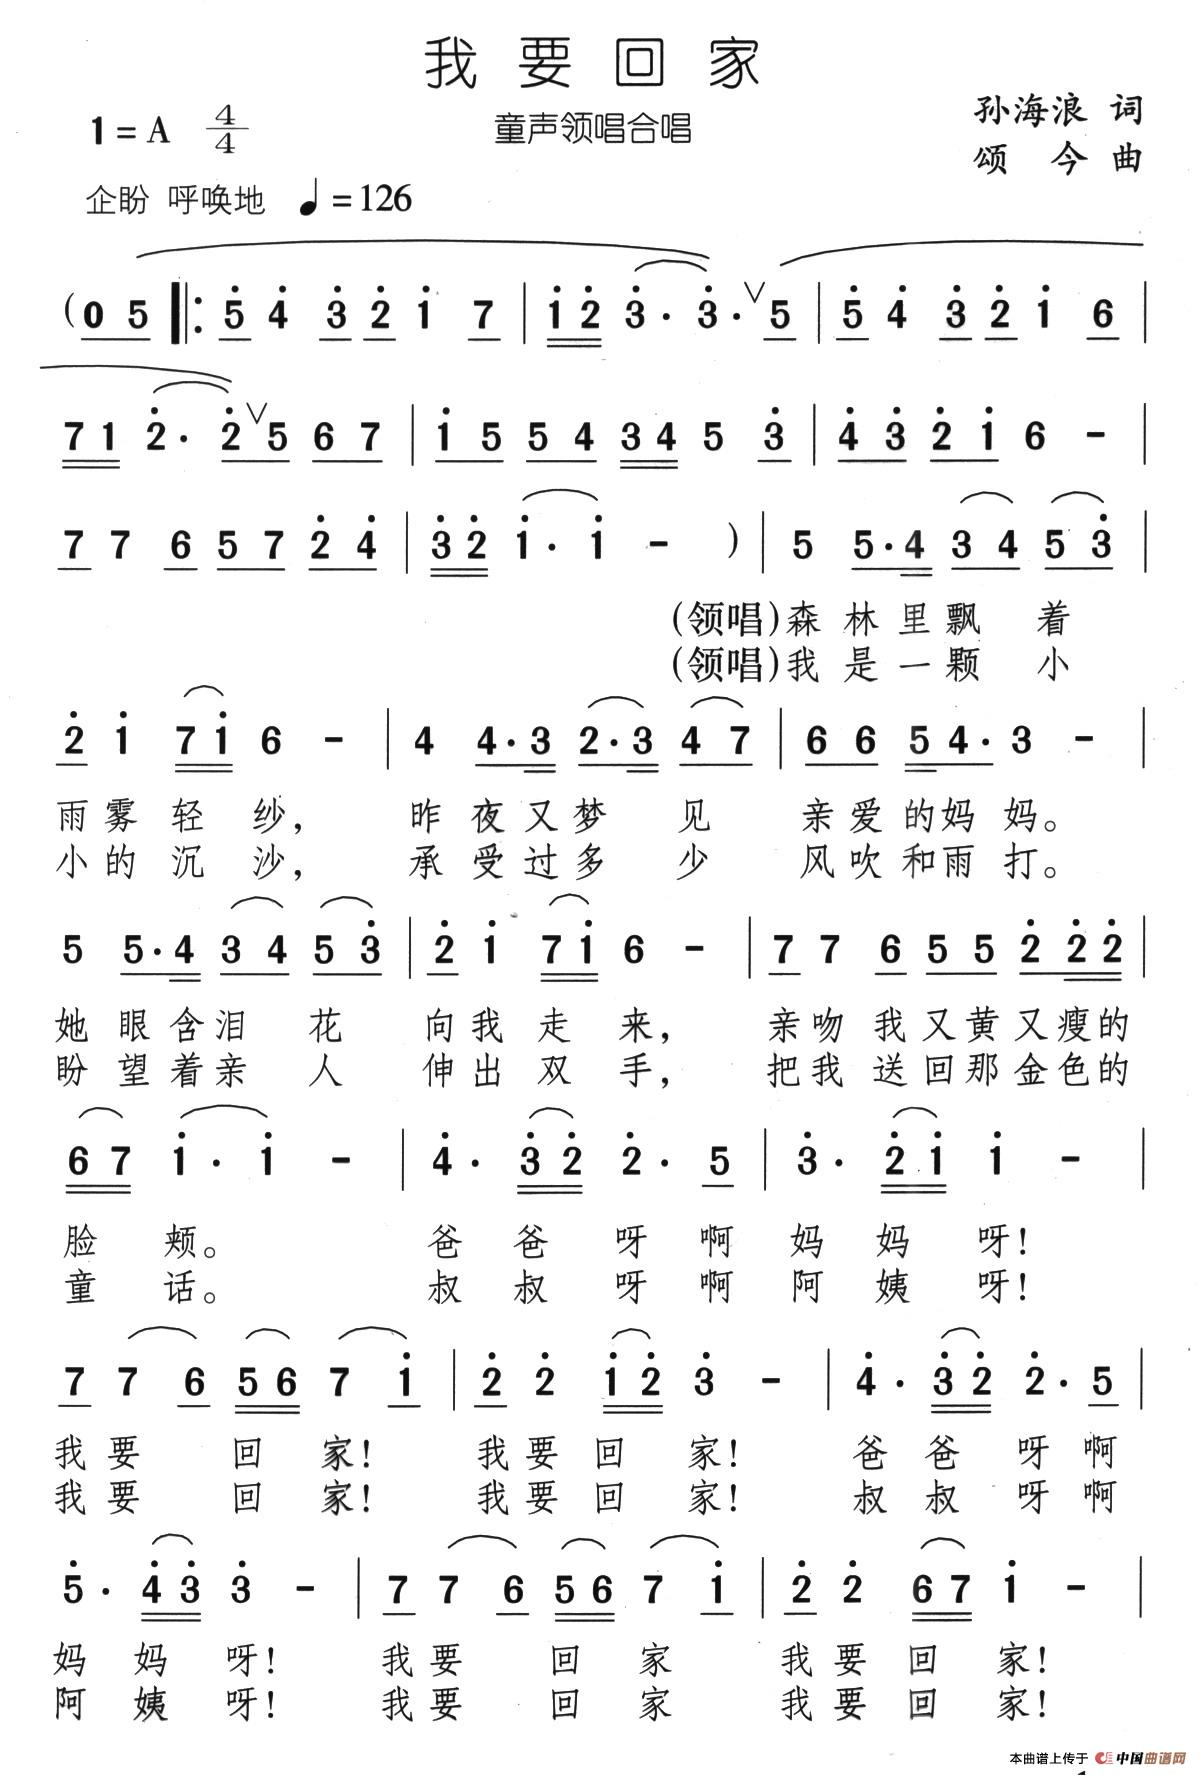 我要回家
童声领唱合唱
1=A 4/4
孙海浪 词
颂今 曲
企盼 呼唤地 ♩=126
(0 5 ‖: 5̇ 4̇ 3̇ 2̇ 1̇ 7 | 1̇ 2̇ 3̇ · 3̇ · ∨ 5 | 5̇ 4̇ 3̇ 2̇ 1̇ 6 |
7 1 2̇ · 2̇ ∨ 5 6 7 | 1̇ 5 5 4 3 4 5 3̇ | 4̇ 3̇ 2̇ 1̇ 6 - |
7 7 6 5 7 2̇ 4̇ | 3̇ 2̇ 1̇ · 1̇ - ) | 5 5 · 4 3 4 5 3̇ |
(领唱)森林里飘着
(领唱)我是一颗小
2̇ 1̇ 7 1̇ 6 - | 4 4 · 3 2 · 3 4 7 | 6 6 5 4 · 3 - |
雨雾轻纱, 昨夜又梦见 亲爱的妈妈。
小的沉沙, 承受过多少 风吹和雨打。
5 5 · 4 3 4 5 3̇ | 2̇ 1̇ 7 1̇ 6 - | 7 7 6 5 5 2̇ 2̇ 2̇ |
她眼含泪花 向我走来, 亲吻我又黄又瘦的
盼望着亲人 伸出双手, 把我送回那金色的
6 7 1̇ · 1̇ - | 4̇ · 3̇ 2̇ 2̇ · 5 | 3̇ · 2̇ 1̇ 1̇ - |
脸颊。 爸爸呀啊妈妈呀!
童话。 叔叔呀啊阿姨呀!
7 7 6 5 6 7 1̇ | 2̇ 2̇ 1̇ 2̇ 3̇ - | 4̇ · 3̇ 2̇ 2̇ · 5 |
我要回家! 我要回家! 爸爸呀啊
我要回家! 我要回家! 叔叔呀啊
5̇ · 4̇ 3̇ 3̇ - | 7 7 6 5 6 7 1̇ | 2̇ 2̇ 6 7 1̇ - |
妈妈呀! 我要回家 我要回家!
阿姨呀! 我要回家 我要回家!
本曲谱上传于 中国曲谱网